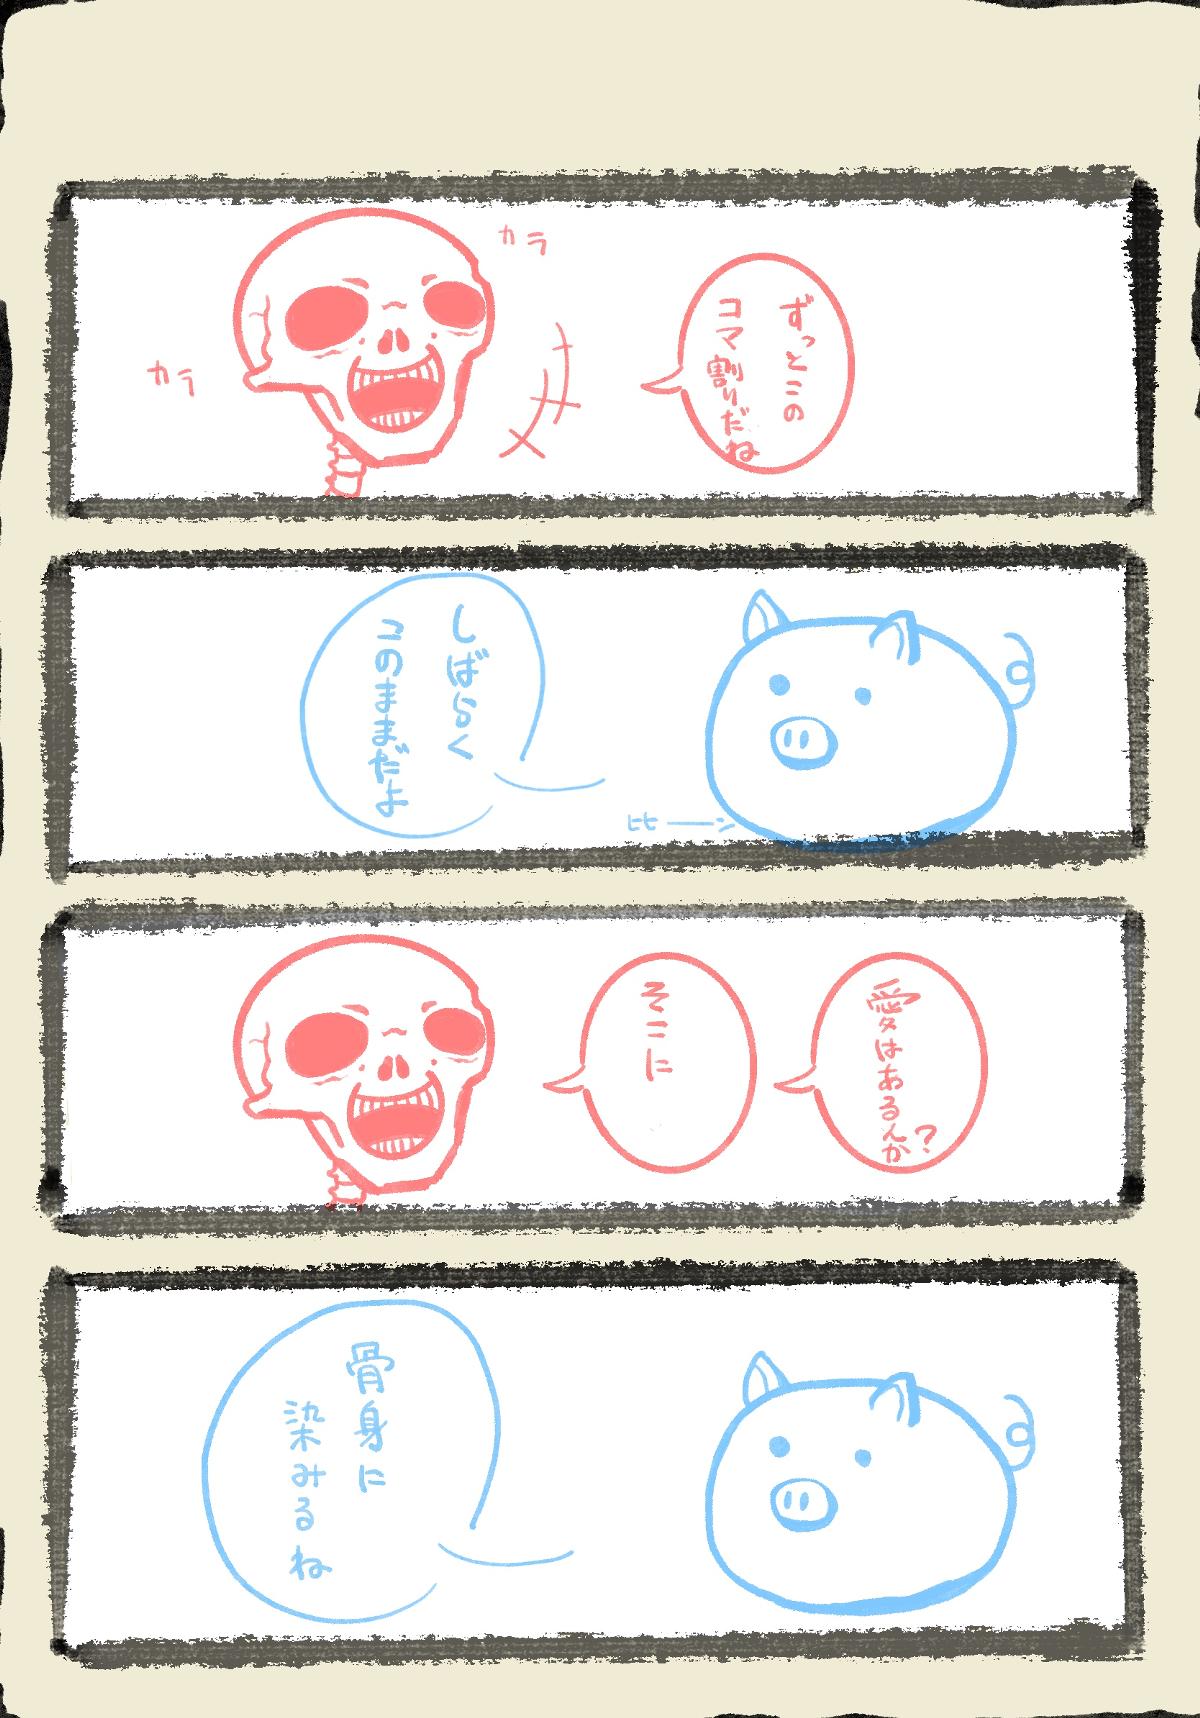 ずっとこの
コマ割りだね
カラ
カラ
しばらく
このままだよ
愛はあるんか?
そこに
骨身に
染みるね